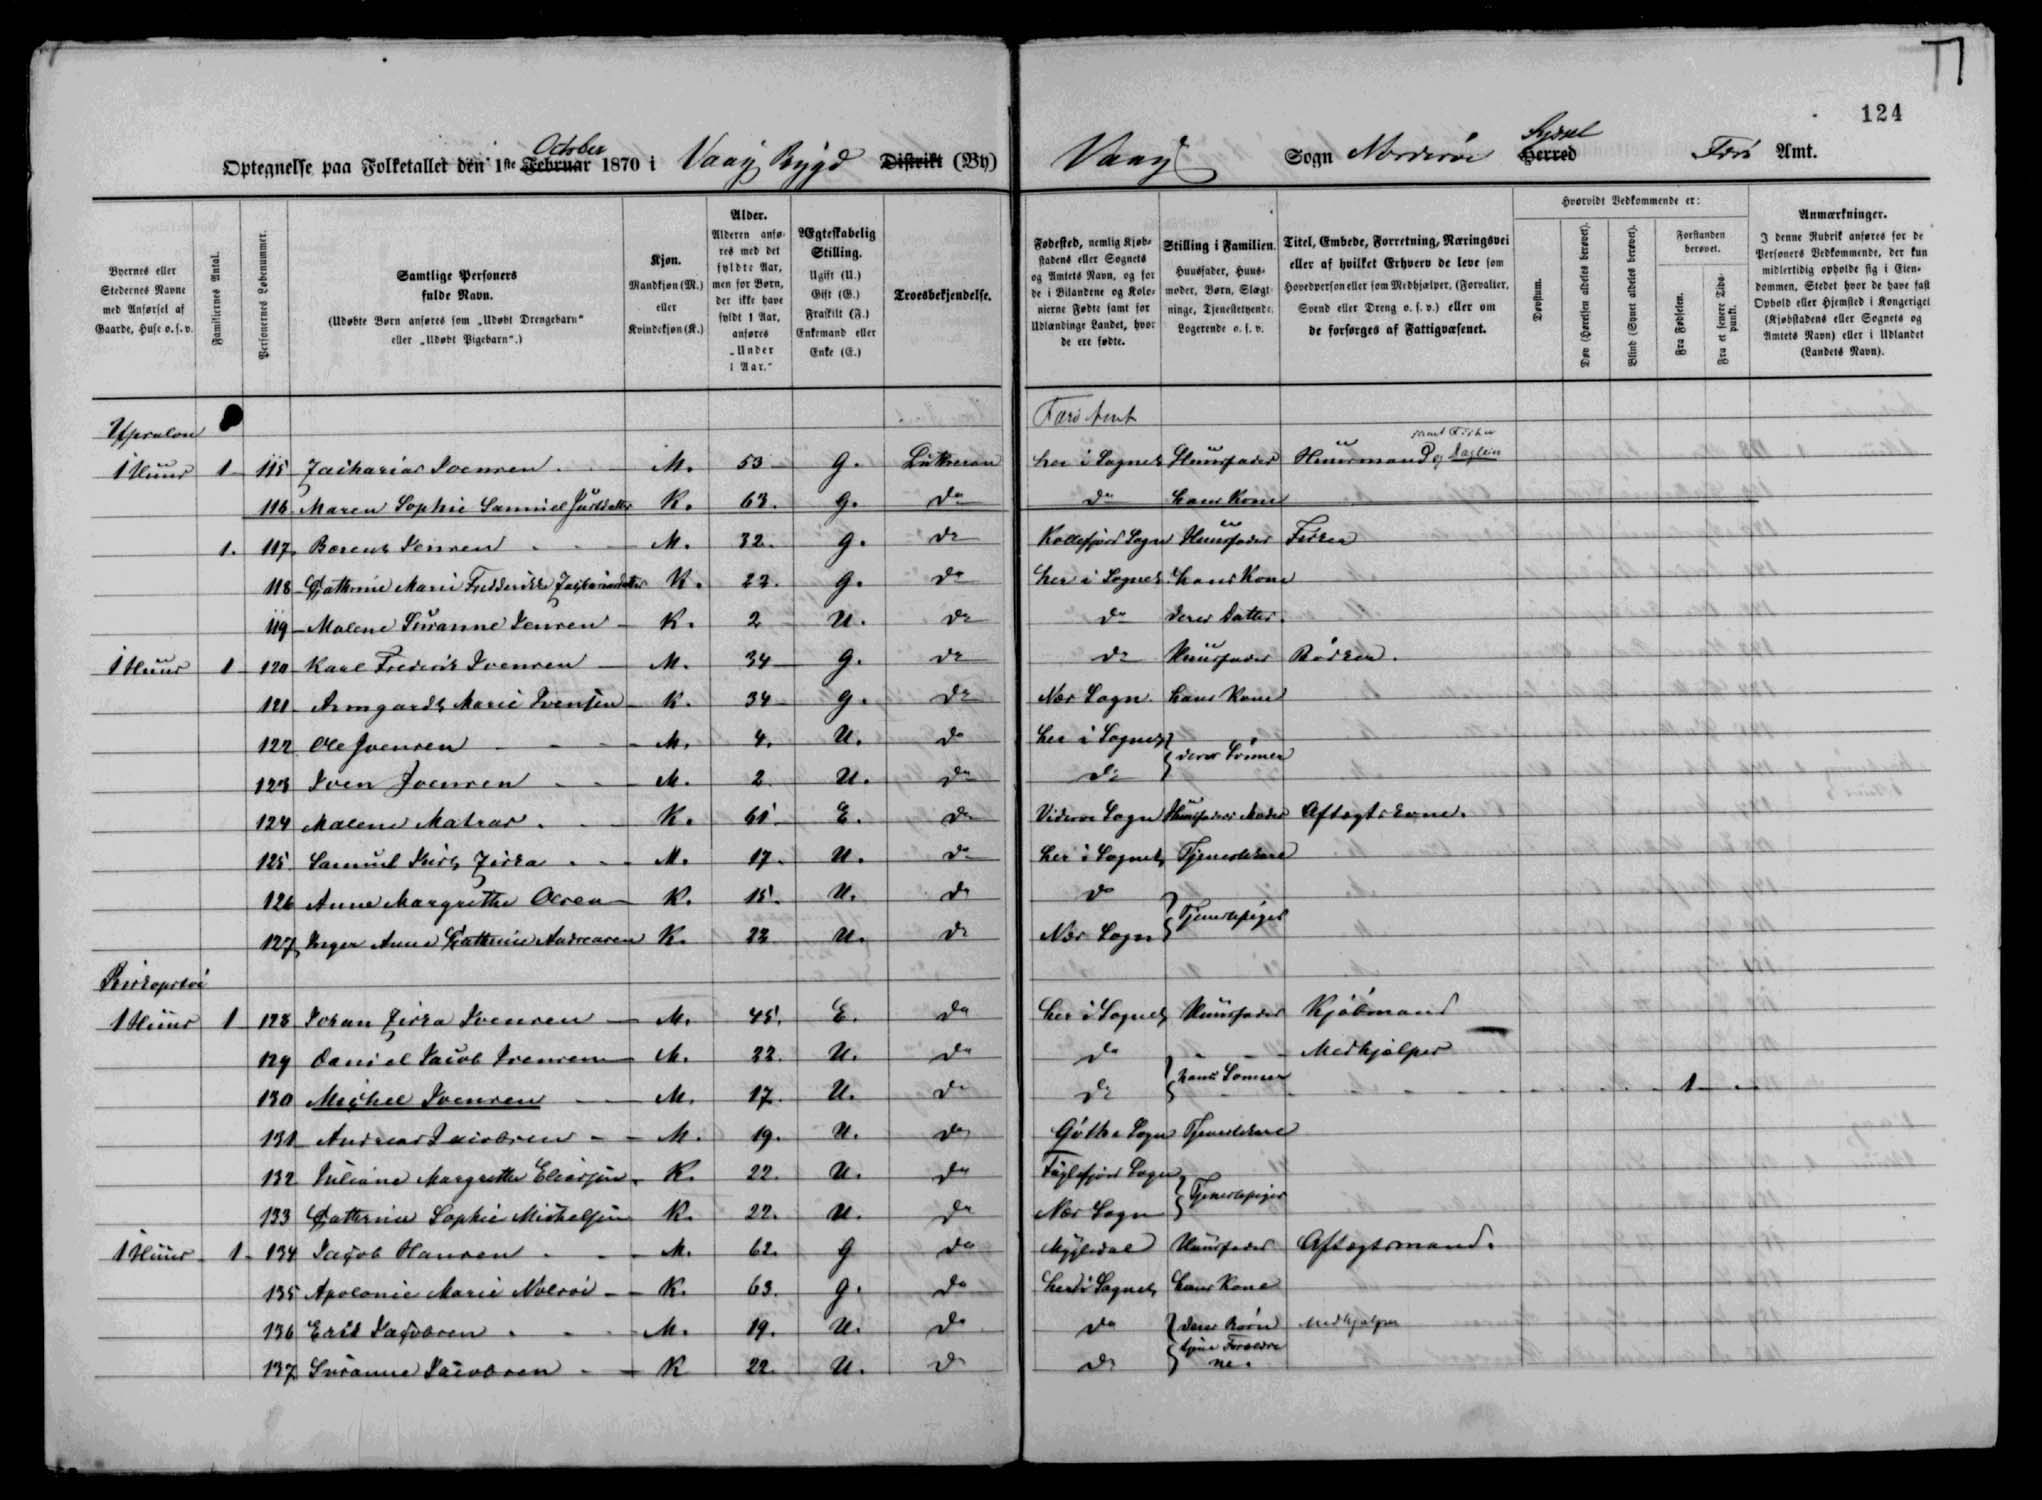 124
Optegnelse paa Folketallet den 1ste Februar October 1870 i Vaag Bygd Distrikt (By)
Vaag Sogn Norderöe Herred Syssel Færö Amt.
Byernes eller Stedernes Navne med Anførsel af Gaarde, Huse o. s. v.
Familiernes Antal.
Personernes Løbenummer.
Samtlige Personers fulde Navn.
(Udøbte Børn anføres som „Udøbt Drengebarn“ eller „Udøbt Pigebarn“.)
Kjøn.
Mandkjøn (M.) eller Kvindekjøn (K.)
Alder.
Alderen anføres med det fyldte Aar, men for Børn, der ikke have fyldt 1 Aar, anføres „Under 1 Aar.“
Ægteskabelig Stilling.
Ugift (U.) Gift (G.) Fraskilt (F.) Enkemand eller Enke (E.)
Troesbekjendelse.
Fødested, nemlig Kjøbstadens eller Sognets og Amtets Navn, og for de i Bilandene og Kolonierne Fødte samt for Udlændinge Landet, hvor de ere fødte.
Stilling i Familien.
Huusfader, Huusmoder, Børn, Slægtninge, Tjenestetyende, Logerende o. s. v.
Titel, Embede, Forretning, Næringsvei eller af hvilket Erhverv de leve som Hovedperson eller som Medhjælper, (Forvalter, Svend eller Dreng o. s. v.) eller om de forsørges af Fattigvæsenet.
Hvorvidt Vedkommende er:
Døvstum.
Døv (Hørelsen aldeles berøvet).
Blind (Synet aldeles berøvet).
Forstanden berøvet.
Fra Fødselen.
Fra et senere Tidspunkt.
Anmærkninger.
I denne Rubrik anføres for de Personers Vedkommende, der kun midlertidig opholde sig i Eiendommen, Stedet hvor de have fast Ophold eller Hjemsted i Kongeriget (Kjøbstadens eller Sognets og Amtets Navn) eller i Udlandet (Landets Navn).
Færö Amt
1 Huus 1 115 Zacharias Joensen M. 53 G. Lutheran her i Sognet Huusfader Huusmand og Daglein samt Fisker
116 Maren Sophie Samuel K. 63. G. do do hans Kone
1. 117 Berent Jensen M. 32. G. do Kollefjord Sogn Huusfader Fisker
118 Cathrine Marie Fredderikke Zachariasdatter K. 22. G. do her i Sognet hans Kone
119 Malene Susanne Jensen K. 2 U. do do deres Datter
1 Huus 1 120 Karl Frederik Joensen M. 34 G. do do Huusfader Bödker.
121 Armgardt Marie Joensen K. 34 G. do Nes Sogn hans Kone
122 Ole Joensen M. 4. U. do her i Sognet deres Sönner
123 Joen Joensen M. 2 U. do do
124 Malene Matras K. 61 E. do Videroe Sogn Huusfaders Moder Aftægtskone.
125 Samuel M. 17. U. do her i Sognet Tjenestekarl
126 Anne Margrethe Olsen K. 15. U. do do Tjenestepiger
127 Inger Anne Cathrine Andreasen K. 22 U. do Nes Sogn
1 Huus 1 128 Johan Joensen M. 45. E. do her i Sognet Huusfader Kjöbmand
129 Daniel Jacob Joensen M. 22. U. do do hans Sönner Medhjælper
130 Michel Joensen M. 17. U. do do 1
131 Andreas Jacobsen M. 19. U. do Göthe Sogn Tjenestekarl
132 Juliane Margrethe Eliesen K. 22. U. do Fuglefjord Sogn Tjenestepiger
133 Cathrine Sophie Michelsen K. 22. U. do Nes Sogn
1 Huus 1 134 Jacob Hansen M. 62. G do Myglidal Huusfader Aftægtsmand.
135 Apolonie Marie Nolsöe K. 63. G. do her i Sognet hans Kone
136 Erik Jacobsen M. 19. U. do do deres Börn tjene Forældrene. Medhjælper
137 Susanne Jacobsen K 22. U. do do